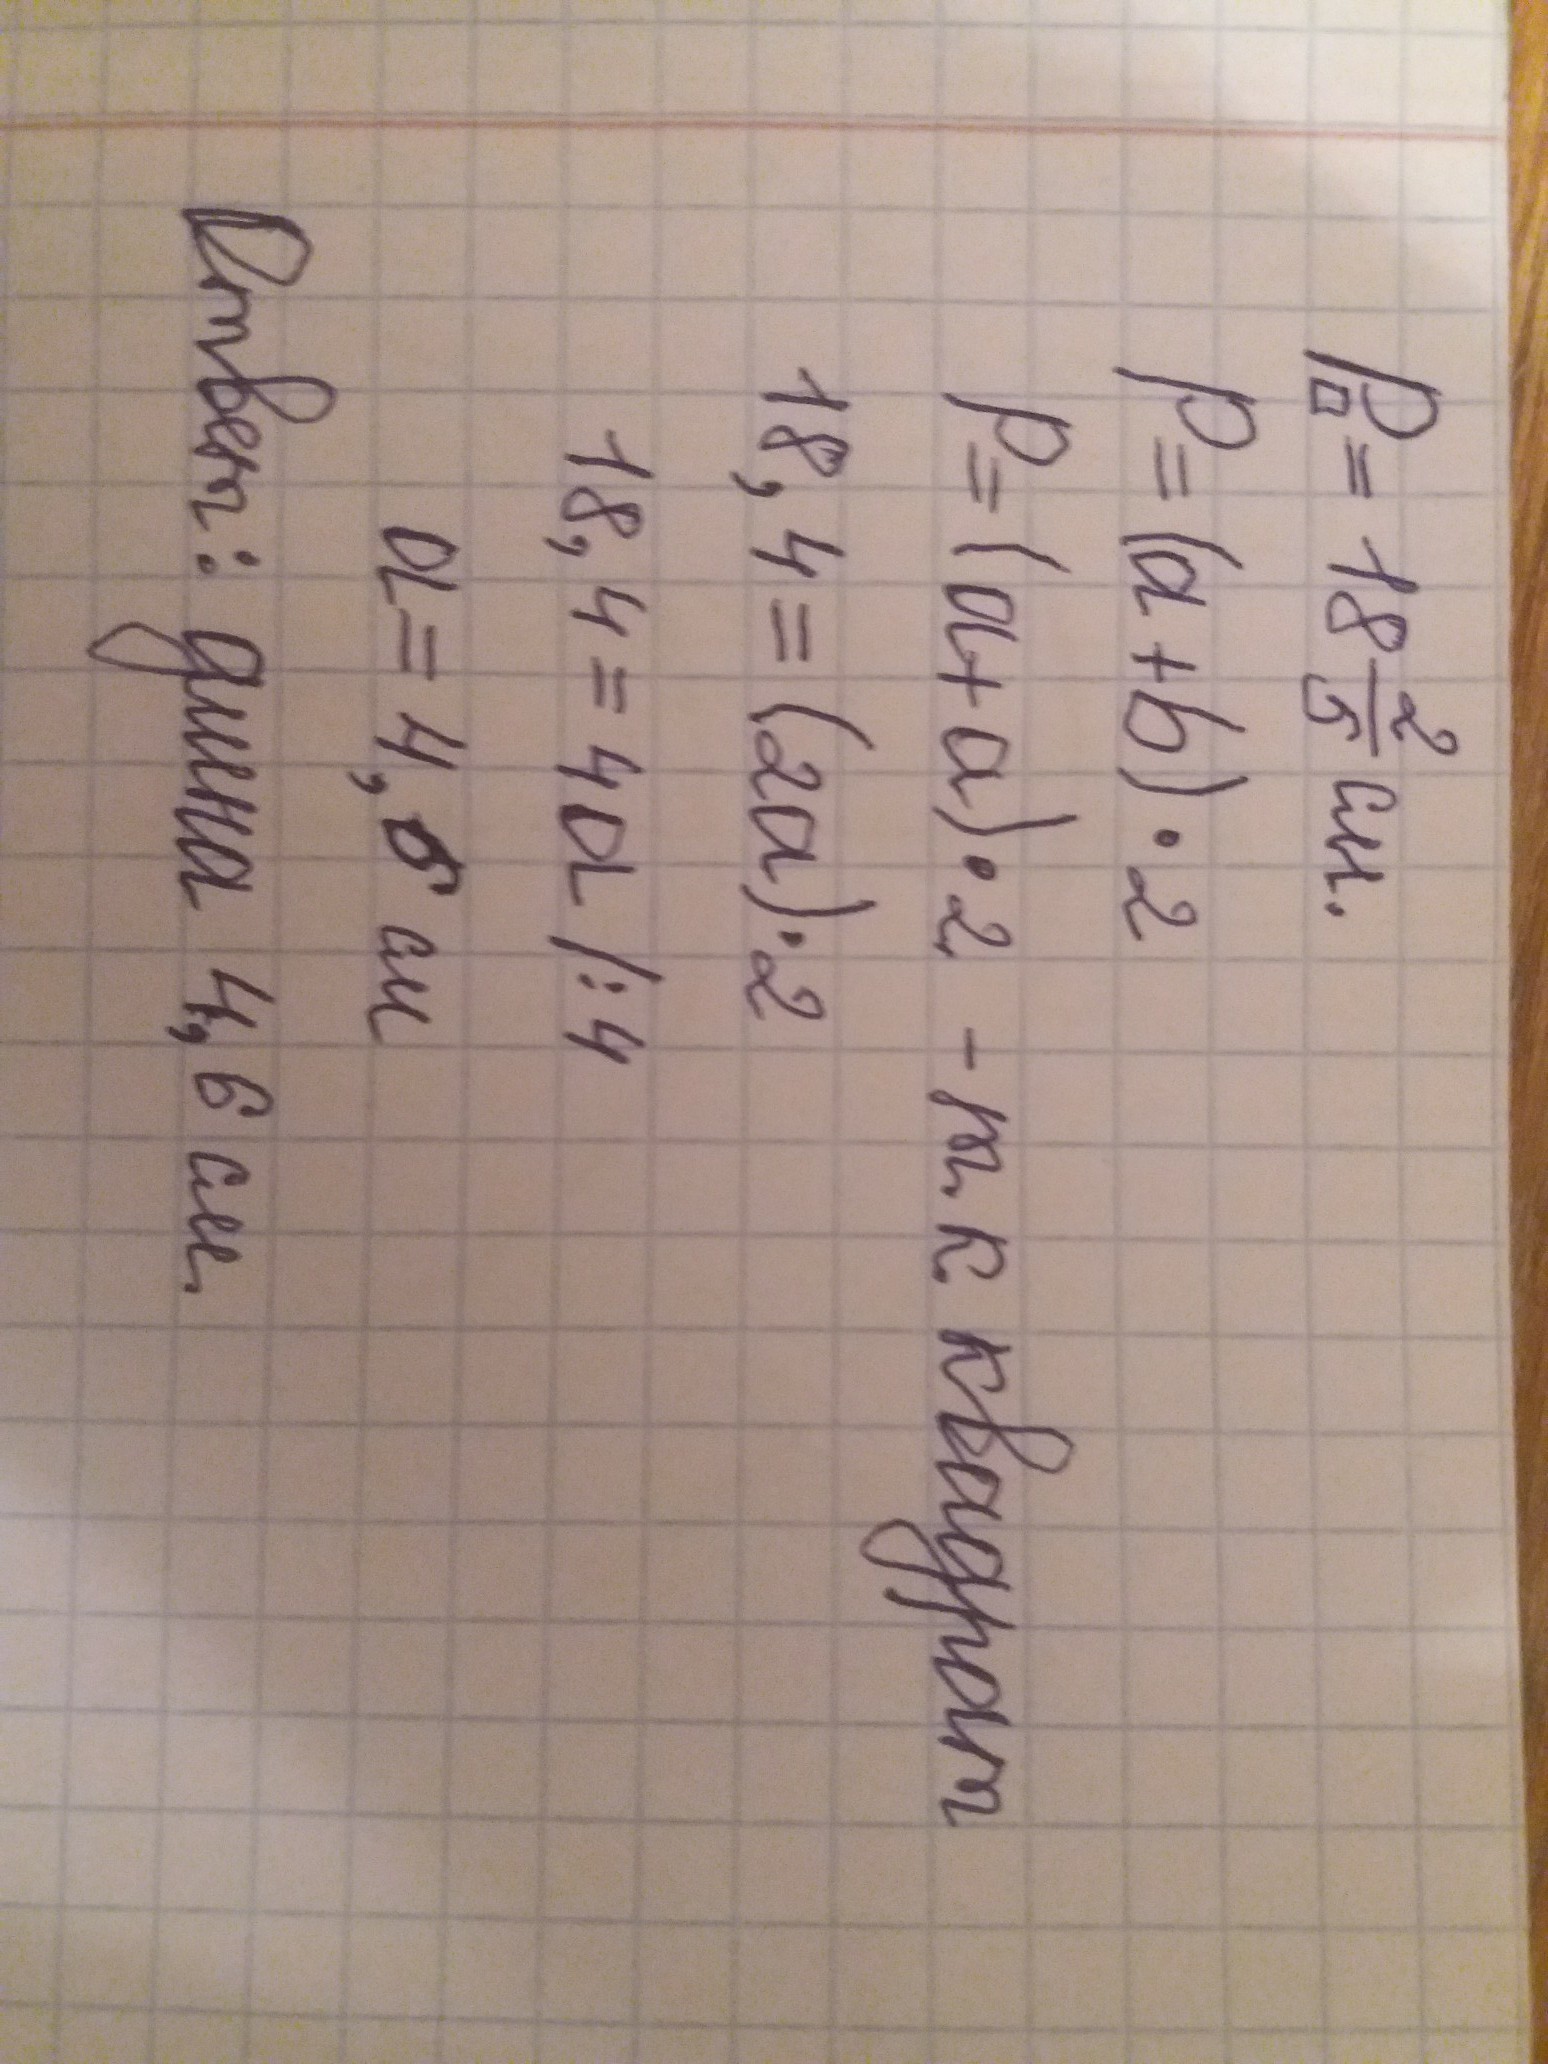 P□ = 18 2/5 см.
P = (a + b) · 2
P = (a + a) · 2 - т. к. квадрат
18,4 = (2a) · 2
18,4 = 4a /: 4
a = 4,6 см
Ответ: длина 4,6 см.